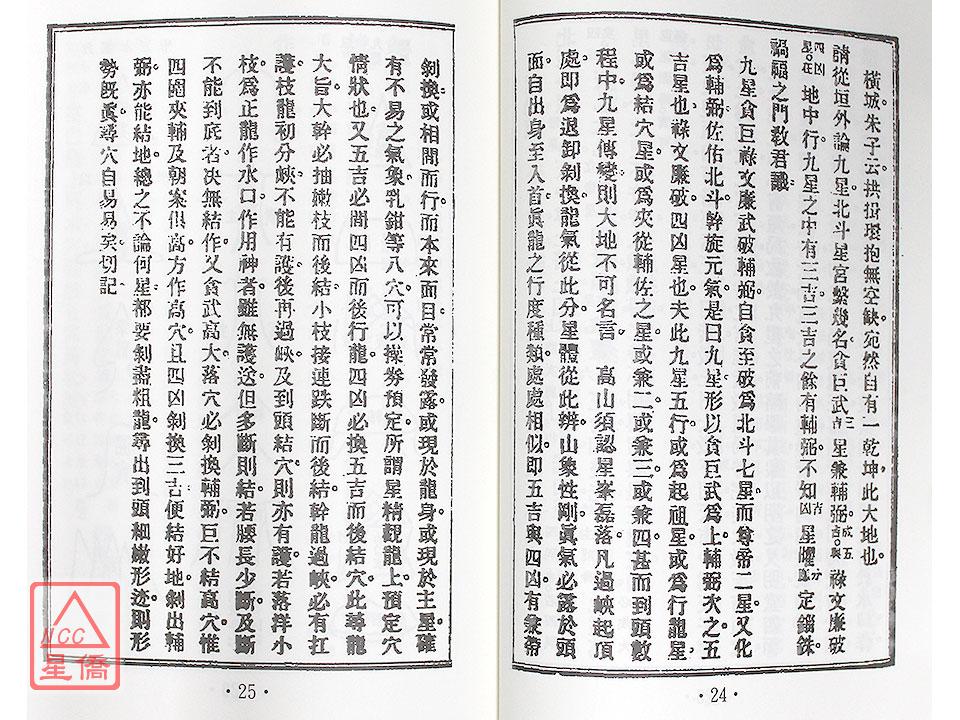 橫城。朱子云。拱揖環抱無空缺。宛然自有一乾坤此大地也
請從垣外論九星。北斗星宮繫幾名。貪巨武三吉星兼輔弼。成五吉。與祿文廉破
四凶星。在地中行。九星之中有三吉。三吉之餘有輔弼。不知凶吉星曜分定錙銖。
禍福之門敎君識
九星貪巨祿文廉武破輔弼。自貪至破爲北斗七星。而尊帝二星。又化
爲輔弼。佐佑北斗。幹旋元氣。是曰九星。形以貪巨武爲上。輔弼次之。五
吉星也。祿文廉破。四凶星也。夫此九星五行。或爲起祖星。或爲行龍星。
或爲結穴星。或爲夾從輔佐之星。或兼二。或兼三。或兼四。甚而到頭數
程中。九星傳變。則大地不可名言。高山須認星峯磊落。凡過峽起頂
處。即爲退卸剝換。龍氣從此分。星體從此辨。山象性剛。眞氣必露於頭
面。自出身至入首。眞龍之行度種類。處處相似。即五吉與四凶。有兼帶
剝換。或相間而行。而本來面目。常常發露。或現於龍身。或現於主星。確
有不易之氣象。乳鉗等八穴。可以操劵預定。所謂星精觀龍上。預定穴
情狀也。又五吉必間四凶。而後行龍。四凶必換五吉。而後結穴。此尋龍
大旨。大幹必抽嫩枝而後結。小枝接連跌斷而後結。幹龍過峽。必有扛
護。枝龍初分峽。不能有護。後再過峽。及到頭結穴。則亦有護。若落洋小
枝。爲正龍作水口。作用神者。雖無護送。但多斷則結。若腰長少斷。及斷
不能到底者。决無結作。又貪武高大。落穴必剝換輔弼。巨不結高穴。惟
四圍夾輔及朝案俱高。方作高穴。且四凶剝換三吉。便結好地。剝出輔
弼。亦能結地。總之不論何星。都要剝盡粗龍。尋出到頭細嫩形迹。則形
勢旣眞。尋穴自易易矣。切記
·25·
·24·
NCC
星僑